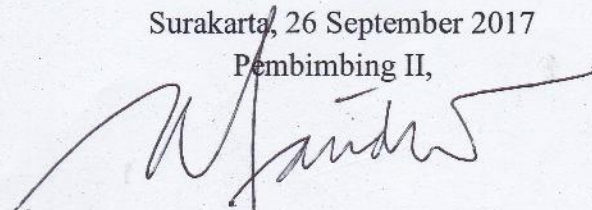 Surakarta, 26 September 2017
Pembimbing II,